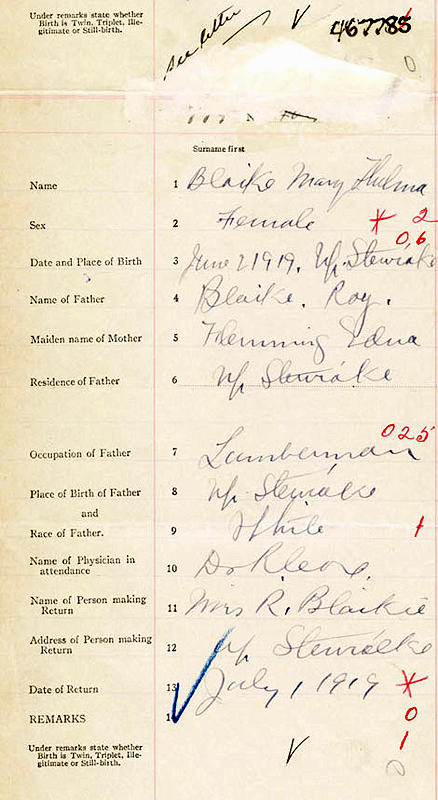 Under remarks state whether
Birth is Twin, Triplet, Ille-
gitimate or Still-birth.
see letter
467785
0
Surname first
Name 1 Blaike Mary Thelma
Sex 2 Female 2
06
Date and Place of Birth 3 June 2 1919, Up. Stewiake
Name of Father 4 Blaike, Roy.
Maiden name of Mother 5 Flemming Edna
Residence of Father 6 Up Stewiake
025
Occupation of Father 7 Lumberman
Place of Birth of Father 8 Up Stewiake
and
Race of Father. 9 White 1
Name of Physician in
attendance 10 Dr
Name of Person making
Return 11 Mrs R. Blaikie
Address of Person making
Return 12 Up Stewialke
Date of Return 13 July 1 1919
REMARKS 14 0
1
Under remarks state whether
Birth is Twin, Triplet, Ille-
gitimate or Still-birth.
0